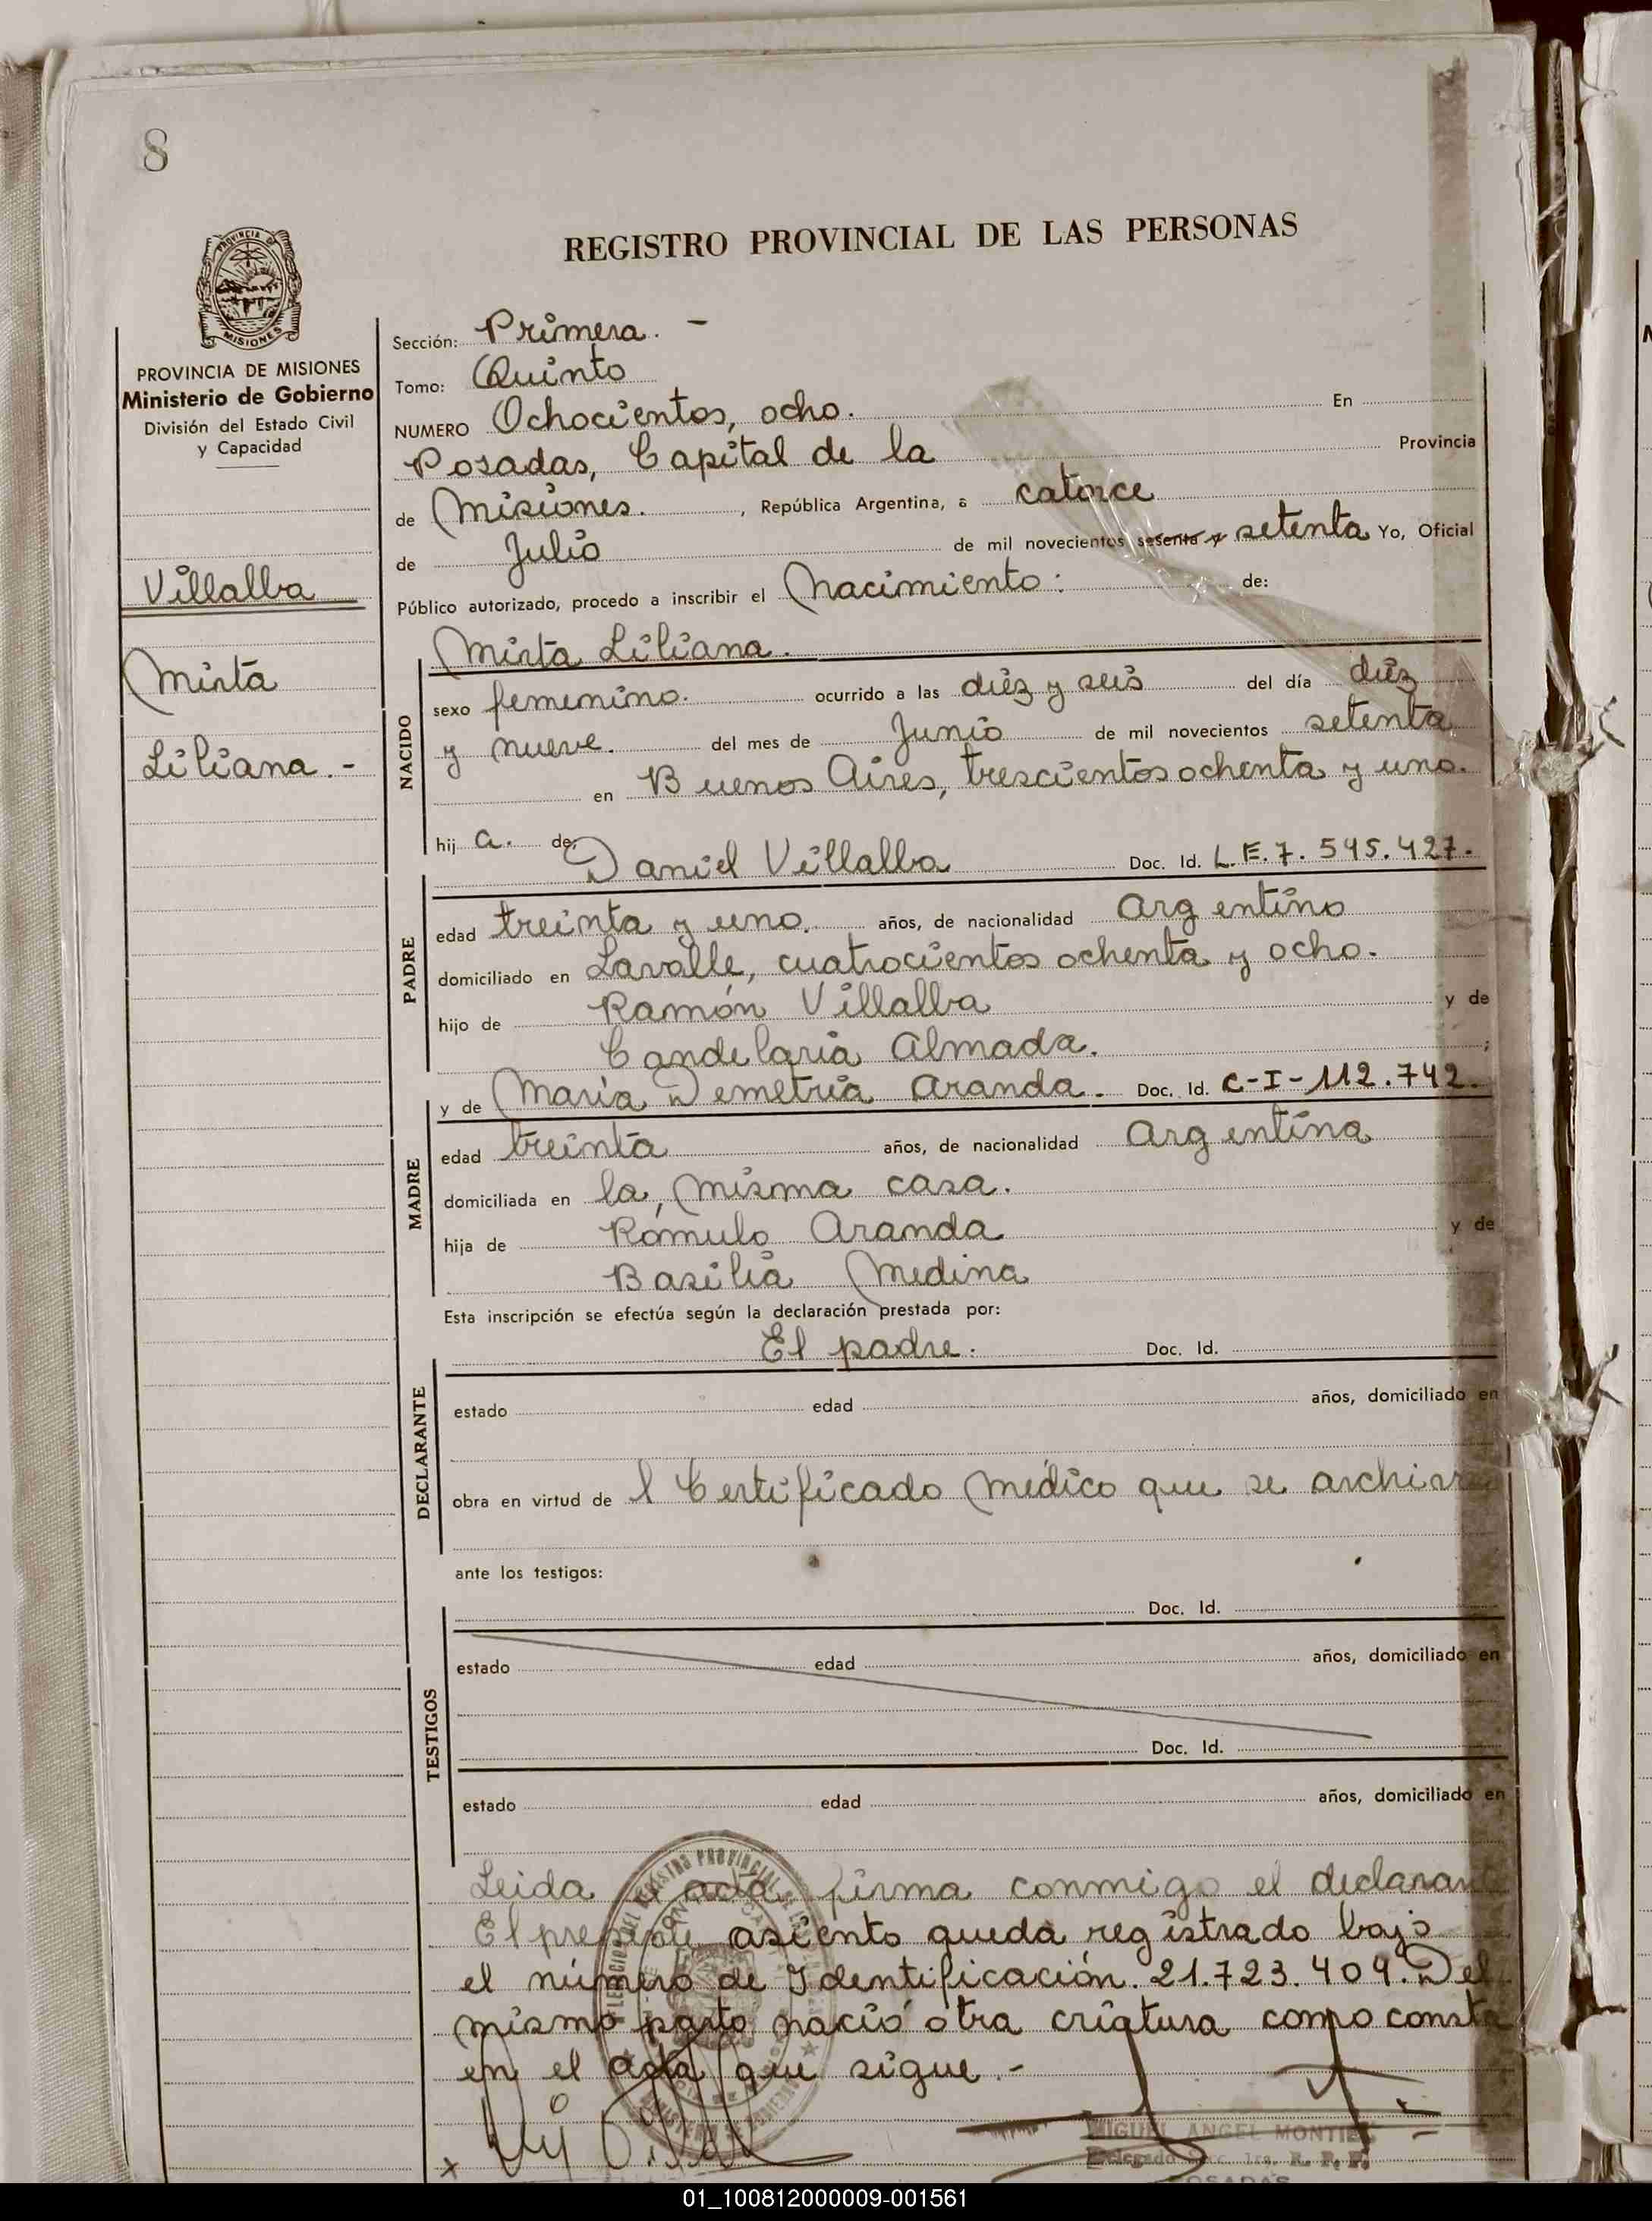 8
REGISTRO PROVINCIAL DE LAS PERSONAS
PROVINCIA DE
MISIONES
PROVINCIA DE MISIONES
Ministerio de Gobierno
División del Estado Civil
y Capacidad
Villalba
Mirta
Liliana.-
Sección: Primera. -
Tomo: Quinto
NUMERO Ochocientos, ocho. En
Posadas, Capital de la Provincia
de Misiones. , República Argentina, a catorce
de Julio de mil novecientos sesenta y setenta Yo, Oficial
Público autorizado, procedo a inscribir el Nacimiento: de:
Mirta Liliana.
NACIDO
sexo femenino. ocurrido a las diéz y seis del día diéz
y nueve. del mes de Junio de mil novecientos setenta
en Buenos Aires, trescientos ochenta y uno.
hij a. de Daniel Villalba Doc. Id. L.E. 7. 545. 427.
PADRE
edad treinta y uno. años, de nacionalidad Argentino
domiciliado en Lavalle, cuatrocientos ochenta y ocho.
hijo de Ramón Villalba y de
Candelaria Almada. ;
y de María Demetria Aranda. Doc. Id. C-I-112.742.
MADRE
edad treinta años, de nacionalidad Argentina
domiciliada en la, misma casa.
hija de Rómulo Aranda y de
Basilia Medina
Esta inscripción se efectúa según la declaración prestada por:
El padre. Doc. Id.
DECLARANTE
estado edad años, domiciliado en
obra en virtud de l Certificado Médico que se archiva
ante los testigos:
Doc. Id.
TESTIGOS
estado edad años, domiciliado en
Doc. Id.
estado edad años, domiciliado en
Leida el acta, firma conmigo el declarante
El presente asiento queda registrado bajo
el número de Identificación. 21.723.409. Del
mismo parto nació otra criatura como consta
en el acta que sigue.-
MIGUEL ANGEL MONTIEL
Delegado Secc. 1ra. R. P. P.
POSADAS
01_100812000009-001561